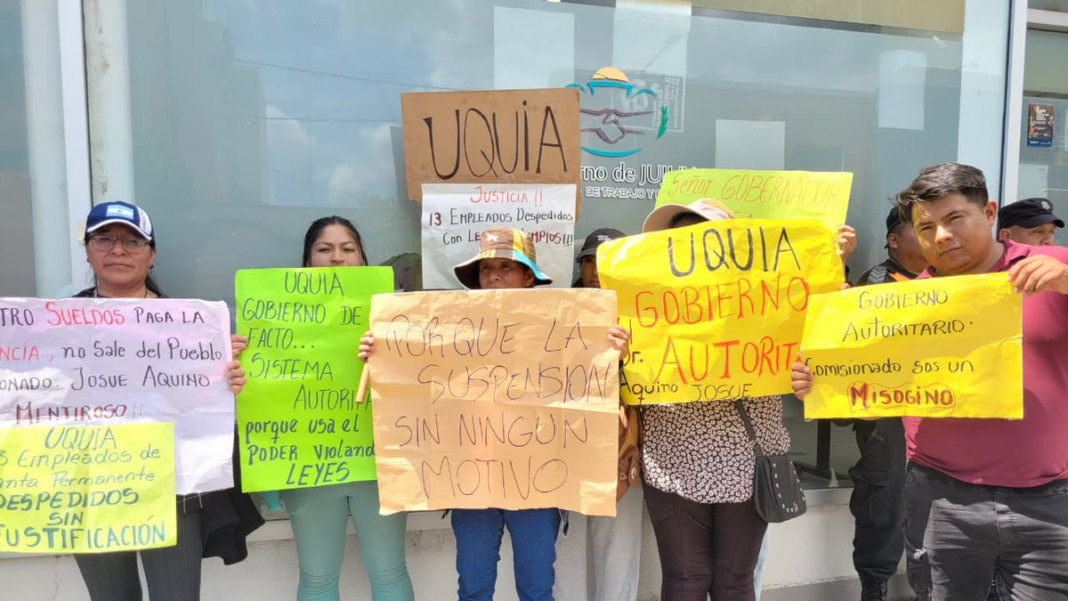 UQUIA
JUSTICIA !!
13 EMPLEADOS Despedidos
Con
rno de JUJUY
DE TRABAJO Y
Señor GOBERNADOR
TRO SUELDOS PAGA LA
NCIA, no Sale del Pueblo
IONADO: JOSUE AQUINO
MENTIROSO!!
UQUIA
3 Empleados de
anta Permanente
DESPEDIDOS
SIN
USTIFICACIÓN
UQUIA
GOBIERNO DE
FACTO...
SISTEMA
AUTORITA
porque usa el
PODER Violando
LEYES
PORQUE LA
SUSPENSION
SIN NINGUN
MOTIVO
UQUIA
GOBIERNO
Dr. AUTORIT
Aquino JOSUE
GOBIERNO
AUTORITARIO.
Comisionado sos un
MISOGINO